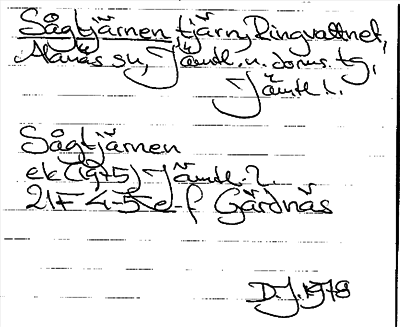 Sågtjärnen, tjärn, Ringvattnet,
Alanäs sn, Jämtl. n. doms. tg,
Jämtl l.
Sågtjärnen
ek (1975) Jämtl. Z
21F 4-5 e-f Gärdnäs
D.J. 1978